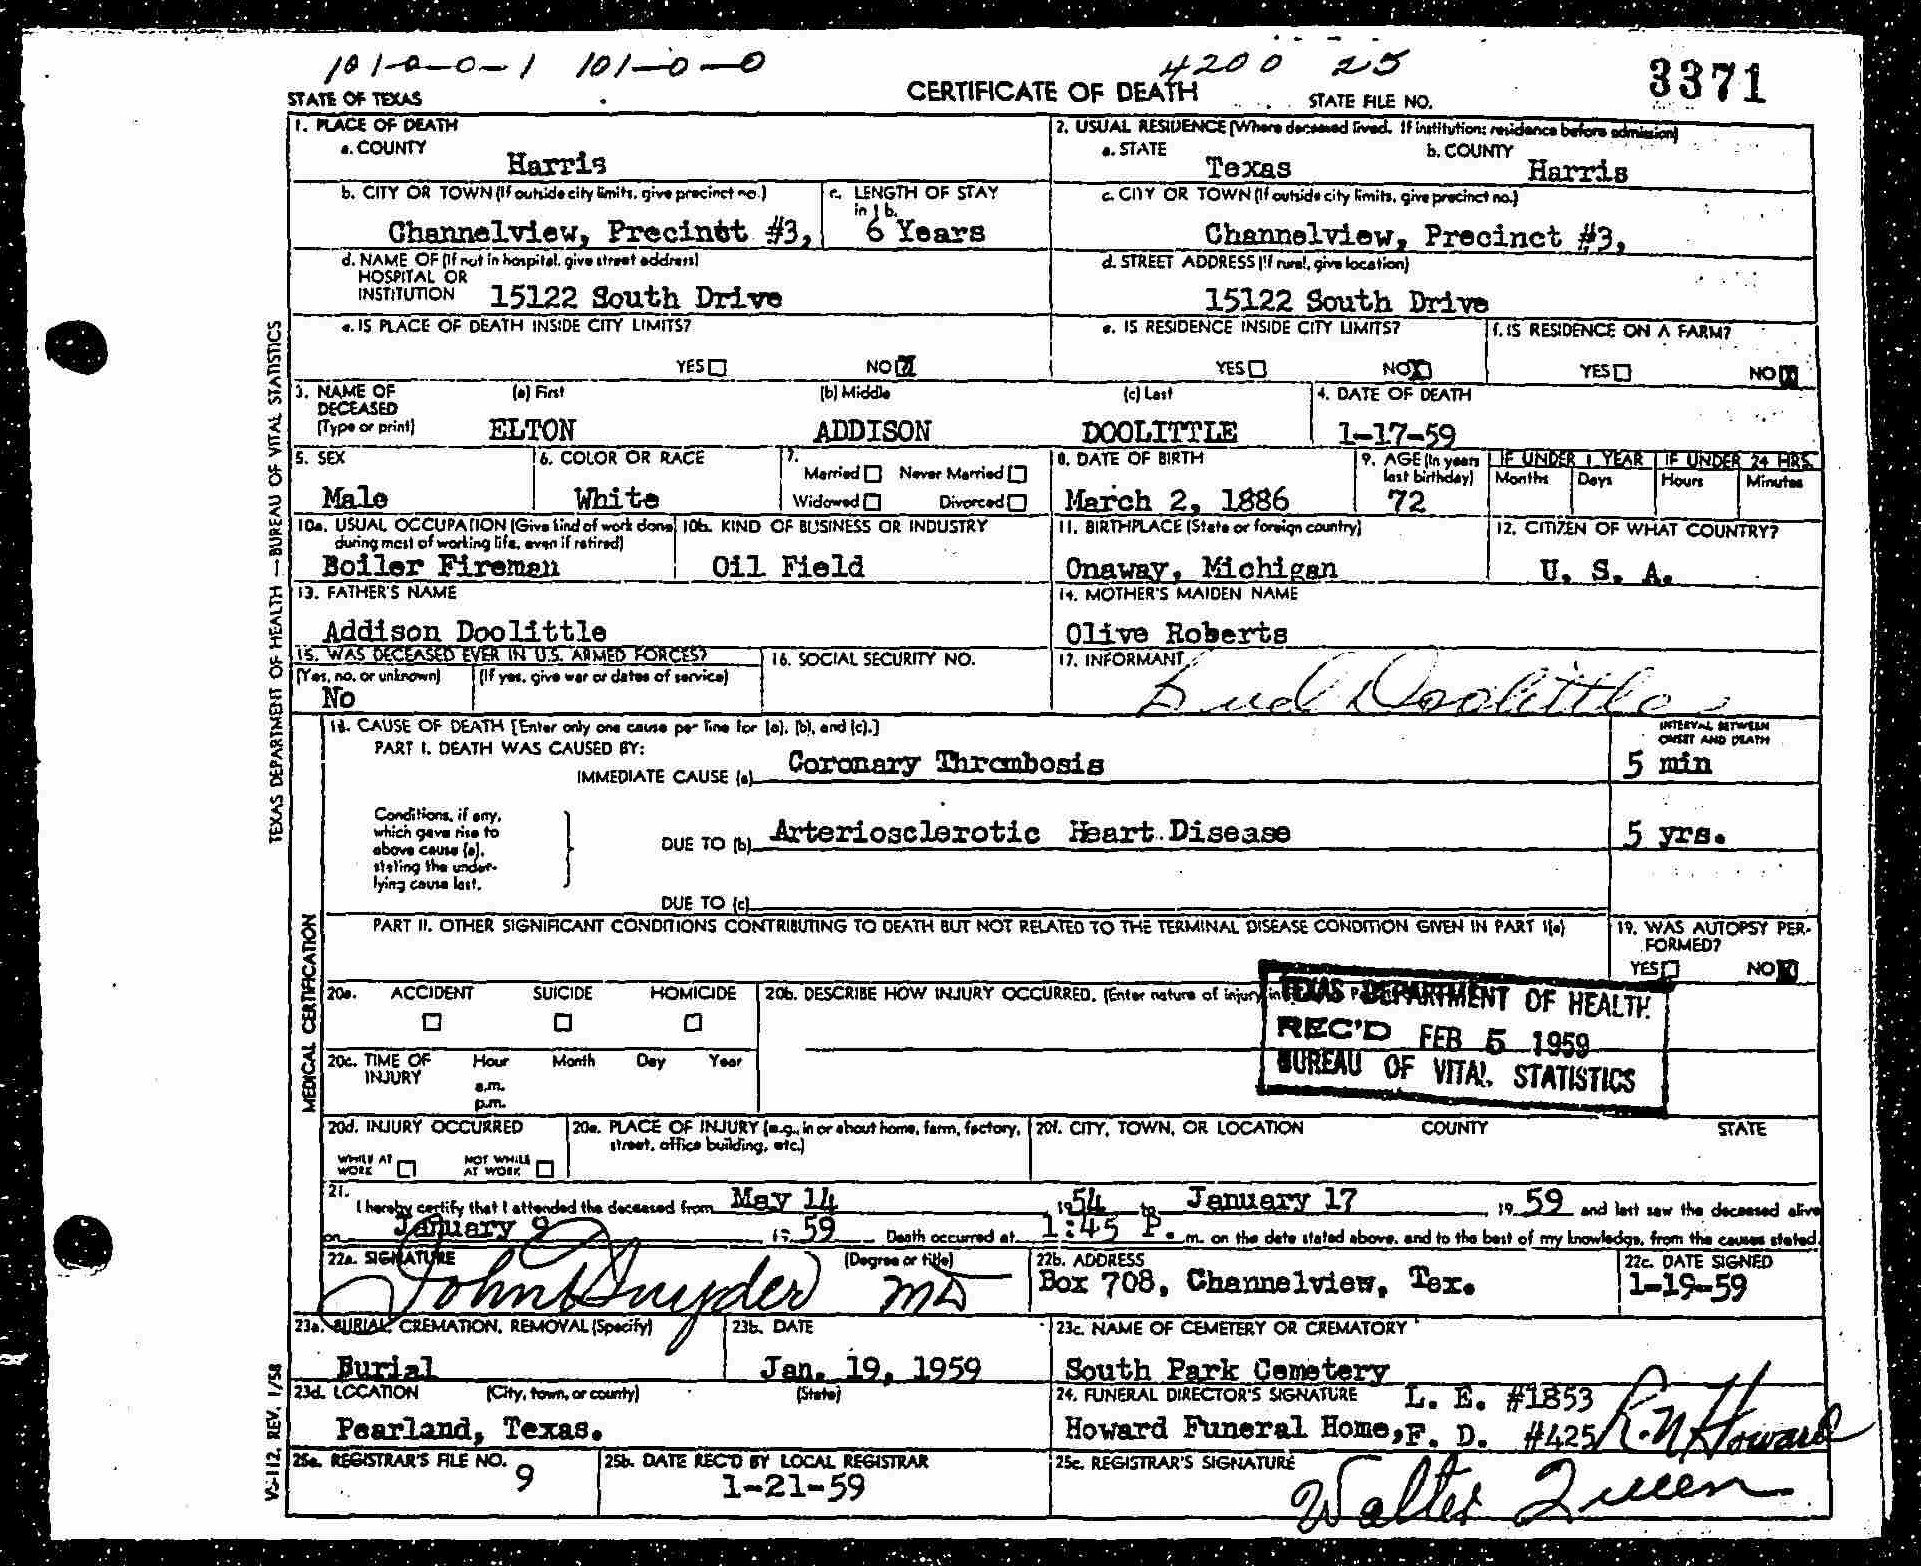 101-0-0-1 101-0-0 4200 25 3371
STATE OF TEXAS CERTIFICATE OF DEATH STATE FILE NO.
1. PLACE OF DEATH
a. COUNTY
Harris
2. USUAL RESIDENCE (Where deceased lived. If institution: residence before admission)
a. STATE b. COUNTY
Texas Harris
b. CITY OR TOWN (If outside city limits, give precinct no.)
Channelview, Precinct #3,
c. LENGTH OF STAY
in 1b.
6 Years
c. CITY OR TOWN (If outside city limits, give precinct no.)
Channelview, Precinct #3,
d. NAME OF (If not in hospital, give street address)
HOSPITAL OR
INSTITUTION 15122 South Drive
d. STREET ADDRESS (If rural, give location)
15122 South Drive
e. IS PLACE OF DEATH INSIDE CITY LIMITS?
YES NO X
e. IS RESIDENCE INSIDE CITY LIMITS?
YES NO X
f. IS RESIDENCE ON A FARM?
YES NO X
3. NAME OF
DECEASED
(Type or print)
(a) First (b) Middle (c) Last
ELTON ADDISON DOOLITTLE
4. DATE OF DEATH
1-17-59
5. SEX
Male
6. COLOR OR RACE
White
7.
Married Never Married
Widowed Divorced
8. DATE OF BIRTH
March 2, 1886
9. AGE (In years
last birthday)
72
IF UNDER 1 YEAR
Months Days
IF UNDER 24 HRS.
Hours Minutes
10a. USUAL OCCUPATION (Give kind of work done
during most of working life, even if retired)
Boiler Fireman
10b. KIND OF BUSINESS OR INDUSTRY
Oil Field
11. BIRTHPLACE (State or foreign country)
Onaway, Michigan
12. CITIZEN OF WHAT COUNTRY?
U. S. A.
13. FATHER'S NAME
Addison Doolittle
14. MOTHER'S MAIDEN NAME
Olive Roberts
15. WAS DECEASED EVER IN U.S. ARMED FORCES?
(Yes, no, or unknown) (If yes, give war or dates of service)
No
16. SOCIAL SECURITY NO.
17. INFORMANT
Bud Doolittle
18. CAUSE OF DEATH [Enter only one cause per line for (a), (b), and (c).]
PART I. DEATH WAS CAUSED BY:
IMMEDIATE CAUSE (a) Coronary Thrombosis
INTERVAL BETWEEN
ONSET AND DEATH
5 min
Conditions, if any,
which gave rise to
above cause (a),
stating the under-
lying cause last.
DUE TO (b) Arteriosclerotic Heart Disease
5 yrs.
DUE TO (c)
PART II. OTHER SIGNIFICANT CONDITIONS CONTRIBUTING TO DEATH BUT NOT RELATED TO THE TERMINAL DISEASE CONDITION GIVEN IN PART I(a)
19. WAS AUTOPSY PER-
FORMED?
YES NO X
20a. ACCIDENT SUICIDE HOMICIDE
20b. DESCRIBE HOW INJURY OCCURRED. (Enter nature of injury in
TEXAS DEPARTMENT OF HEALTH
REC'D FEB 5 1959
BUREAU OF VITAL STATISTICS
20c. TIME OF Hour Month Day Year
INJURY
a.m.
p.m.
20d. INJURY OCCURRED
WHILE AT
WORK
NOT WHILE
AT WORK
20e. PLACE OF INJURY (e.g., in or about home, farm, factory,
street, office building, etc.)
20f. CITY, TOWN, OR LOCATION COUNTY STATE
21.
I hereby certify that I attended the deceased from May 14 1954 to January 17 1959 and last saw the deceased alive
on January 9 1959 Death occurred at 1:45 P. m. on the date stated above, and to the best of my knowledge, from the causes stated.
22a. SIGNATURE (Degree or title)
John Snyder MD
22b. ADDRESS
Box 708, Channelview, Tex.
22c. DATE SIGNED
1-19-59
23a. BURIAL, CREMATION, REMOVAL (Specify)
Burial
23b. DATE
Jan. 19, 1959
23c. NAME OF CEMETERY OR CREMATORY
South Park Cemetery
23d. LOCATION (City, town, or county) (State)
Pearland, Texas.
24. FUNERAL DIRECTOR'S SIGNATURE L. E. #1853
Howard Funeral Home, F. D. #425 R.N. Howard
25a. REGISTRAR'S FILE NO.
9
25b. DATE REC'D BY LOCAL REGISTRAR
1-21-59
25c. REGISTRAR'S SIGNATURE
Walter Queen
TEXAS DEPARTMENT OF HEALTH — BUREAU OF VITAL STATISTICS
MEDICAL CERTIFICATION
VS-112, REV. 1/58